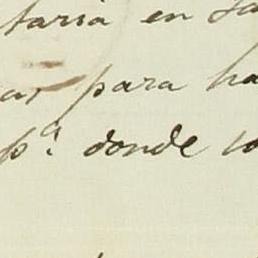 taria en
as para ha
pª. donde